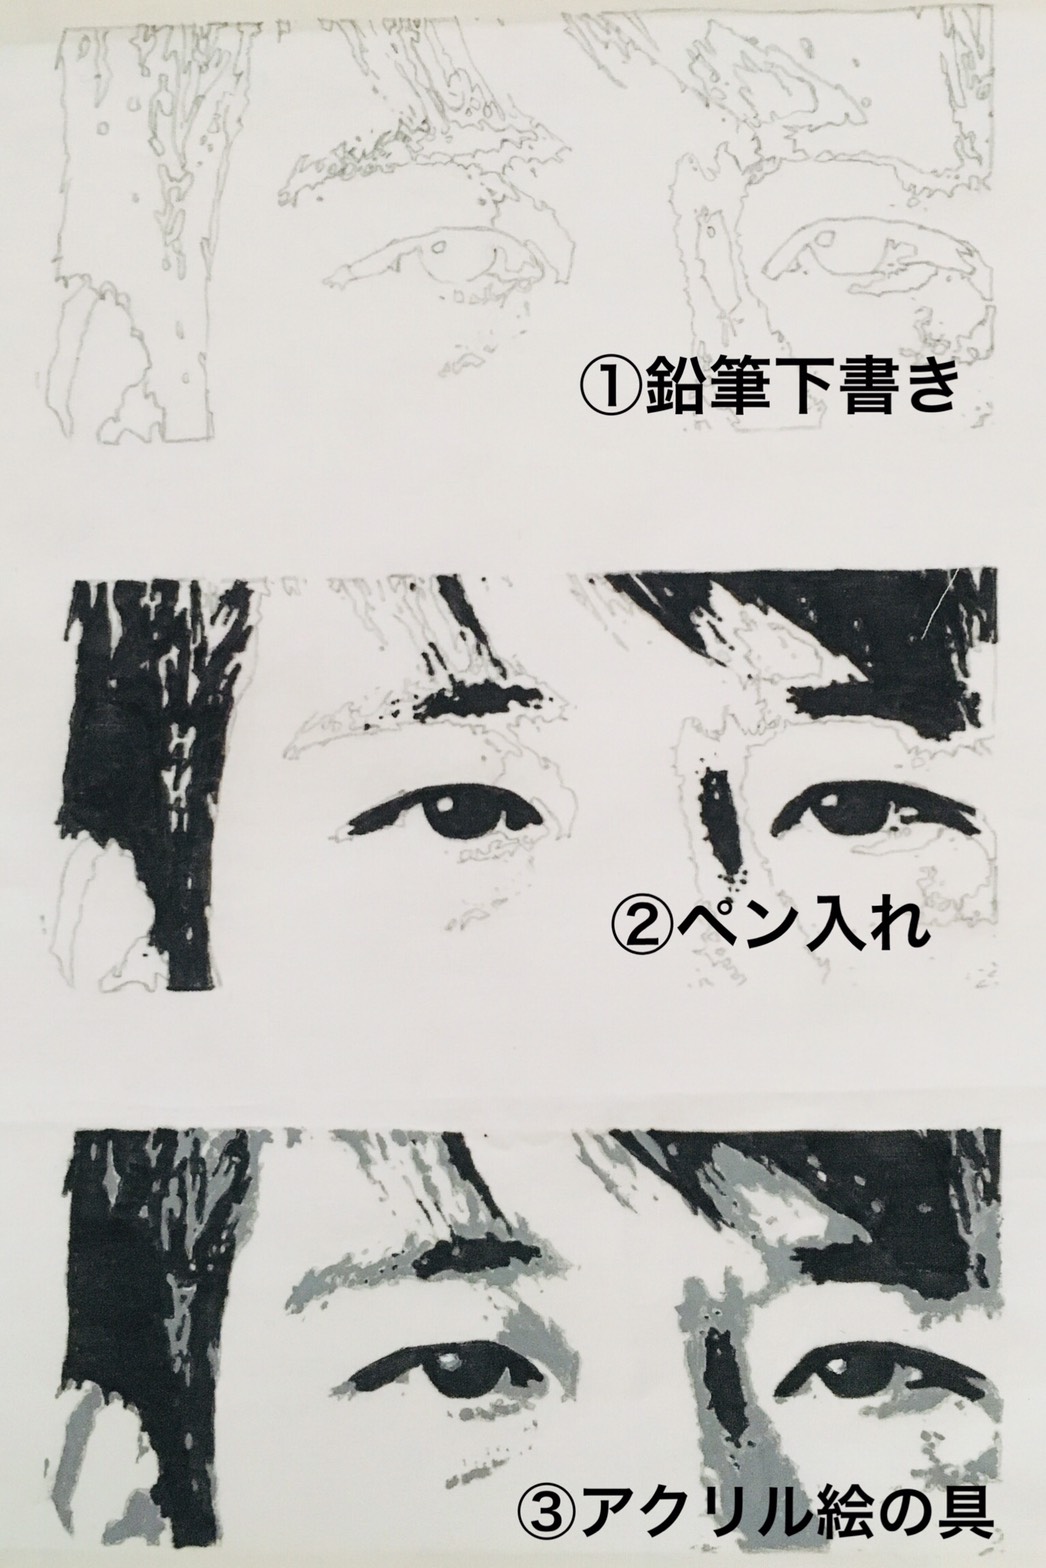 ①鉛筆下書き
②ペン入れ
③アクリル絵の具